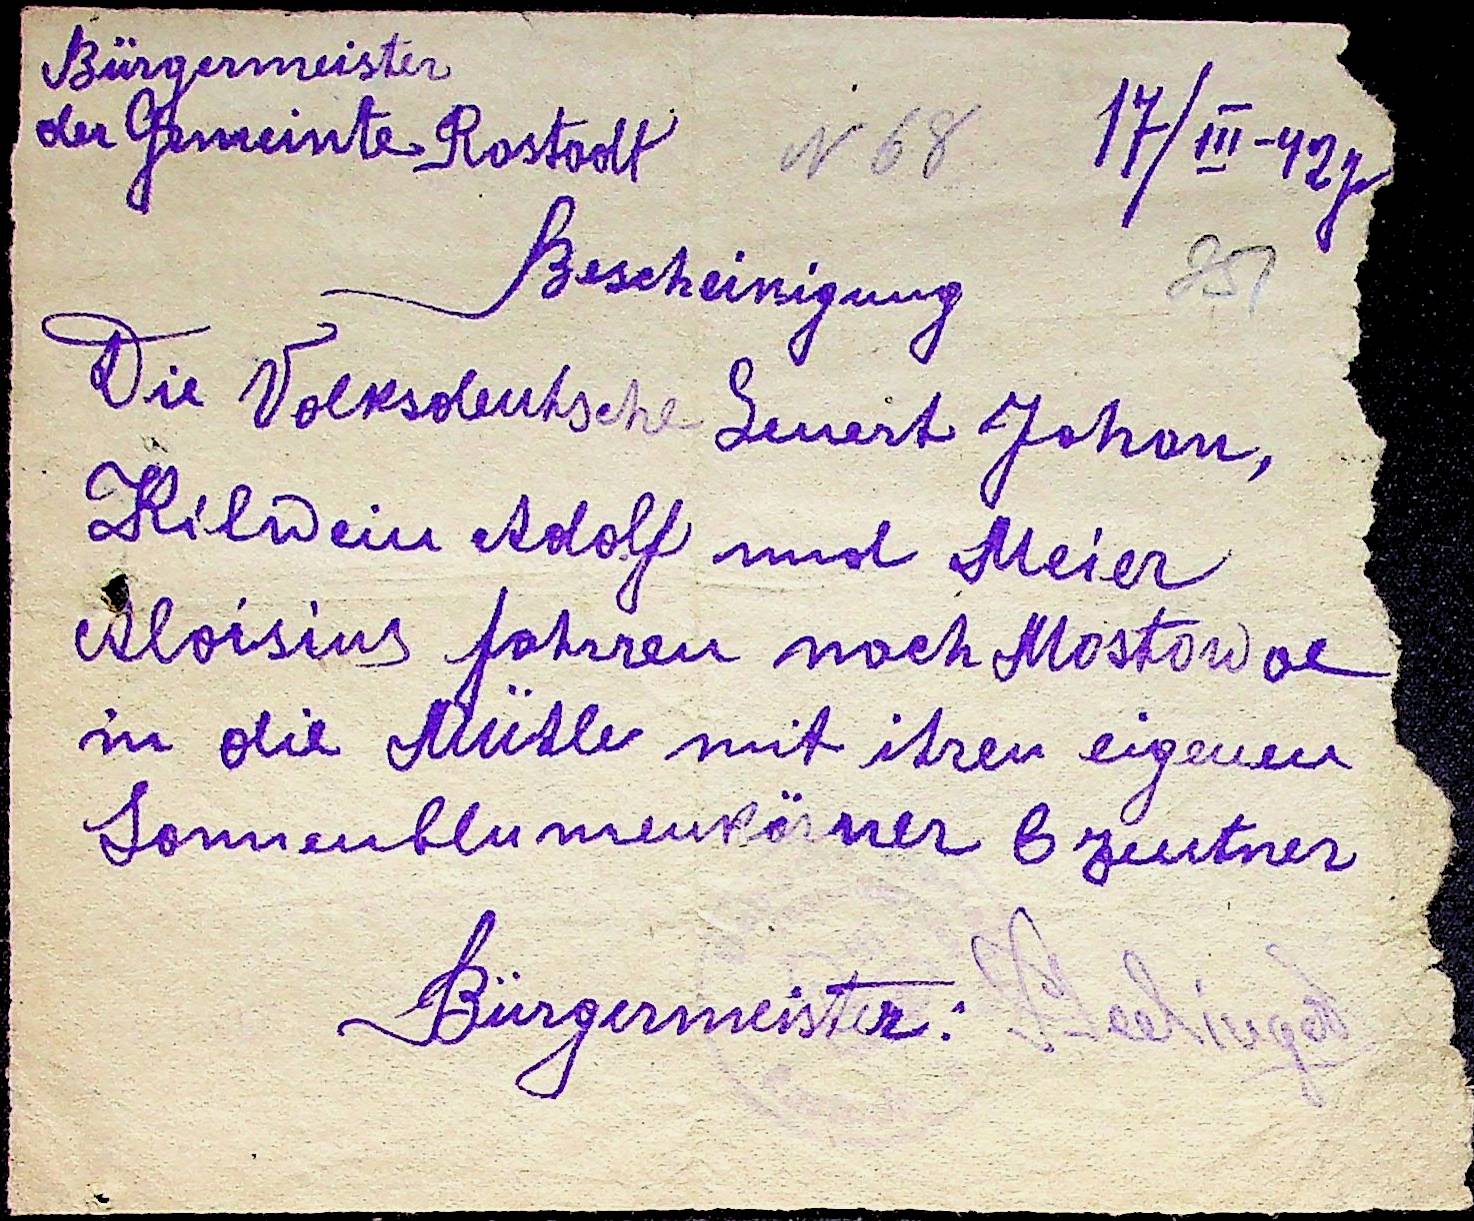 Bürgermeister
der Gemeinte Rastadt
N 68
17/III-42
Bescheinigung
Die Volksdeutsche Johan,
Kilwein Adolf und Meier
Aloisius fahrren nach Mostowoe
in die Mühle mit ihren eigenen
Sonnenblumenkörner 6 zentner
Bürgermeister: